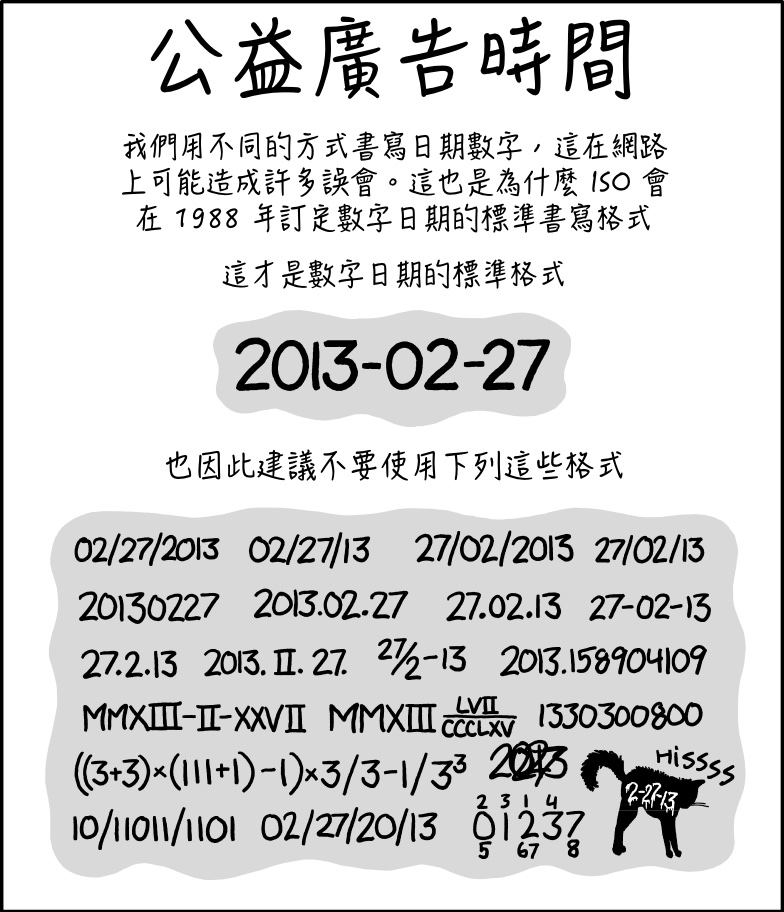 公益廣告時間
我們用不同的方式書寫日期數字，這在網路
上可能造成許多誤會。這也是為什麼 ISO 會
在 1988 年訂定數字日期的標準書寫格式
這才是數字日期的標準格式
2013-02-27
也因此建議不要使用下列這些格式
02/27/2013 02/27/13 27/02/2013 27/02/13
20130227 2013.02.27 27.02.13 27-02-13
27.2.13 2013.II.27. 27/2-13 2013.158904109
MMXIII-II-XXVII MMXIII LVII/CCCLXV 1330300800
((3+3)×(111+1)-1)×3/3-1/3³
HISSSS
2-27-13
10/11011/1101 02/27/20/13
2 3 1 4
01237
5 67 8